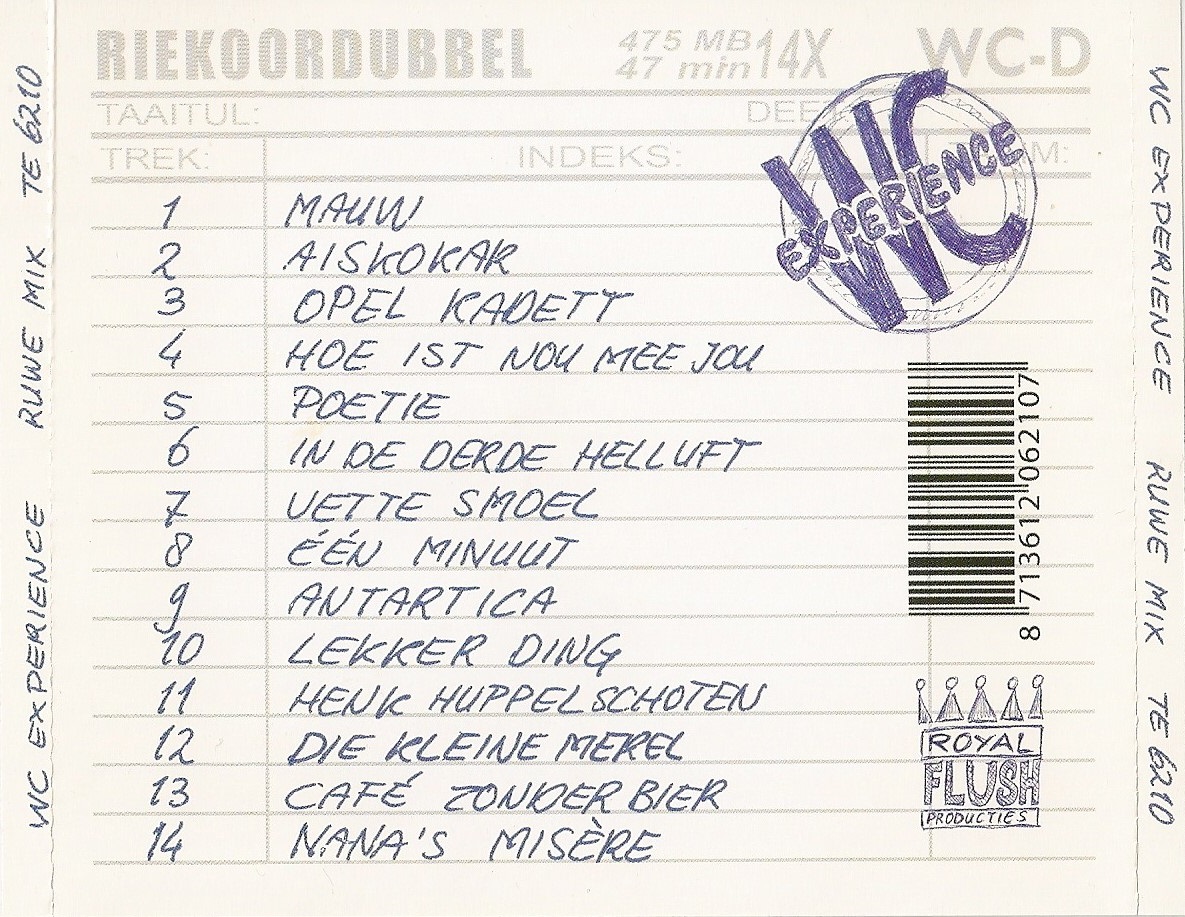 RIEKOORDUBBEL 475 MB 14X WC-D
47 min
TAAITUL: DEET
TREK: INDEKS: M:
WC EXPERIENCE
1 MAUW
2 AISKOKAR
3 OPEL KADETT
4 HOE IST NOU MEE JOU
5 POETIE
6 IN DE DERDE HELLUFT
7 VETTE SMOEL
8 ÉÉN MINUUT
9 ANTARTICA
10 LEKKER DING
11 HENK HUPPELSCHOTEN
12 DIE KLEINE MEREL
13 CAFÉ ZONDER BIER
14 NANA'S MISÈRE
8 713612 062107
ROYAL
FLUSH
PRODUCTIES
WC EXPERIENCE RUWE MIX TE 6210
WC EXPERIENCE RUWE MIX TE 6210